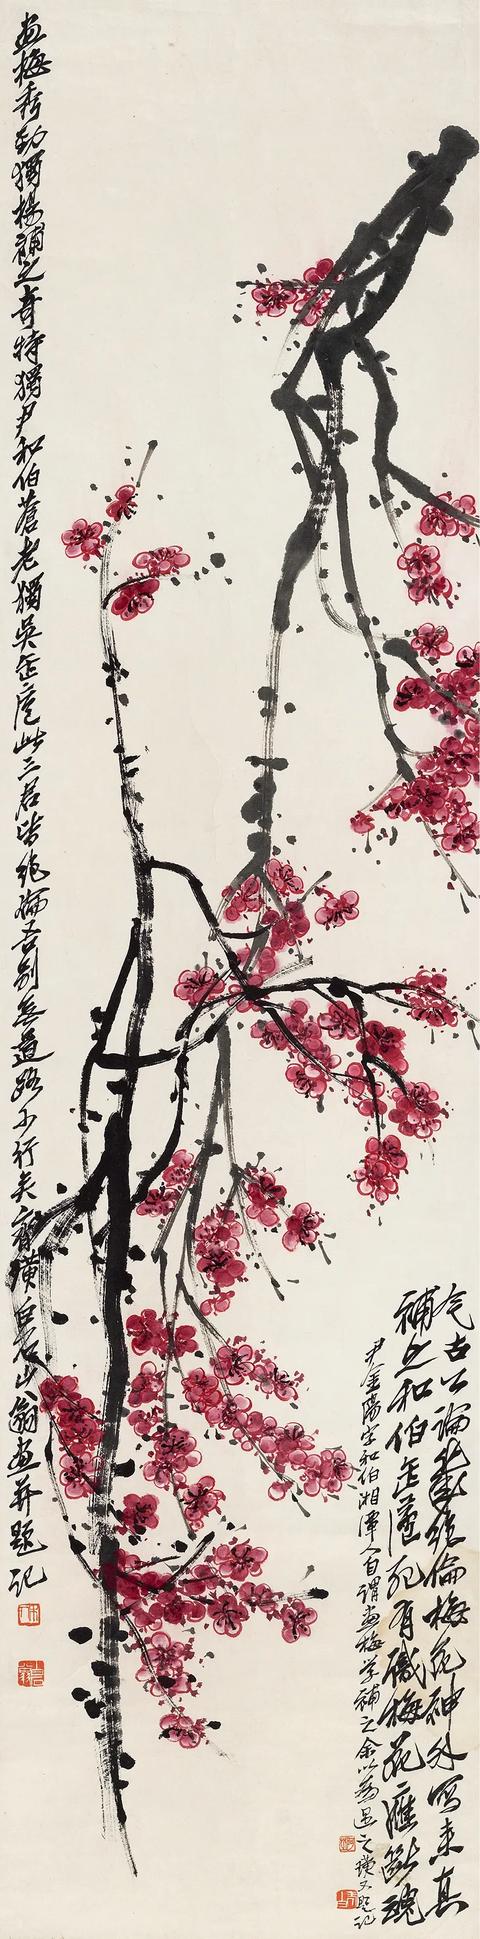 畫梅秀勁獨楊補之奇特獨尹和伯蒼老獨吳缶廬此三君皆絶倫吾別無道路可行矣齊璜白石山翁畫并題記
今古公論幾絶倫梅花神外寫来真
補之和伯缶廬死有識梅花應斷魂
尹金陽字和伯湘潭人自謂畫梅學補之余以為過之璜又題記